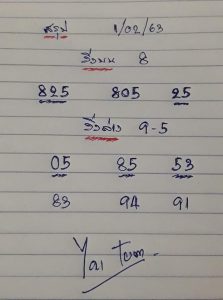 สรุป 1/02/63
วิ่งบน 8
825 805 25
วิ่งล่าง 9-5
05 85 53
83 94 91